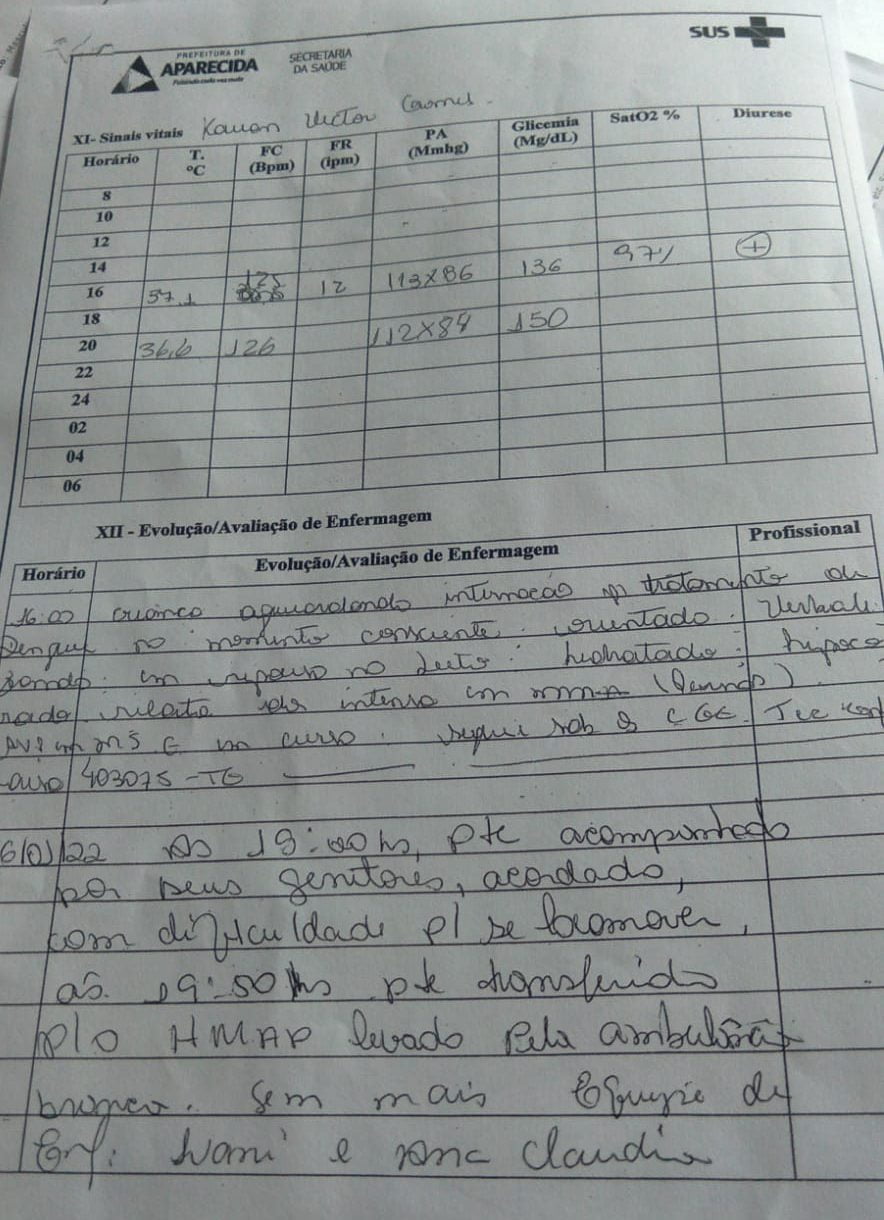 SUS
PREFEITURA DE
APARECIDA
SECRETARIA
DA SAÚDE
XI- Sinais vitais Kauan Victor
Horário T. ºC FC (Bpm) FR (ipm) PA (Mmhg) Glicemia (Mg/dL) SatO2 % Diurese
8
10
12
14
16 37.1 125 12 113X86 136 97% +
18
20 36,6 126 112X84 150
22
24
02
04
06
XII - Evolução/Avaliação de Enfermagem
Horário Evolução/Avaliação de Enfermagem Profissional
16:00 criança aguardando internação p/ tratamento de
Dengue no momento consciente. orientado. Verbali
zando. em repouso no leito. hidratado. hipoco
rado. relata dor intensa em
AVP em MS E em curso. segue sob os C GE. Tec
403075-TE
6/01/22 As 19:00hs, pte acompanhado
por seus genitores, acordado,
com dificuldade p/ se locomover,
as 19:50hs pte transferido
p/o HMAP levado pela ambulância
branca. Sem mais Equipe de
Enf. Ivani e Ana Claudia